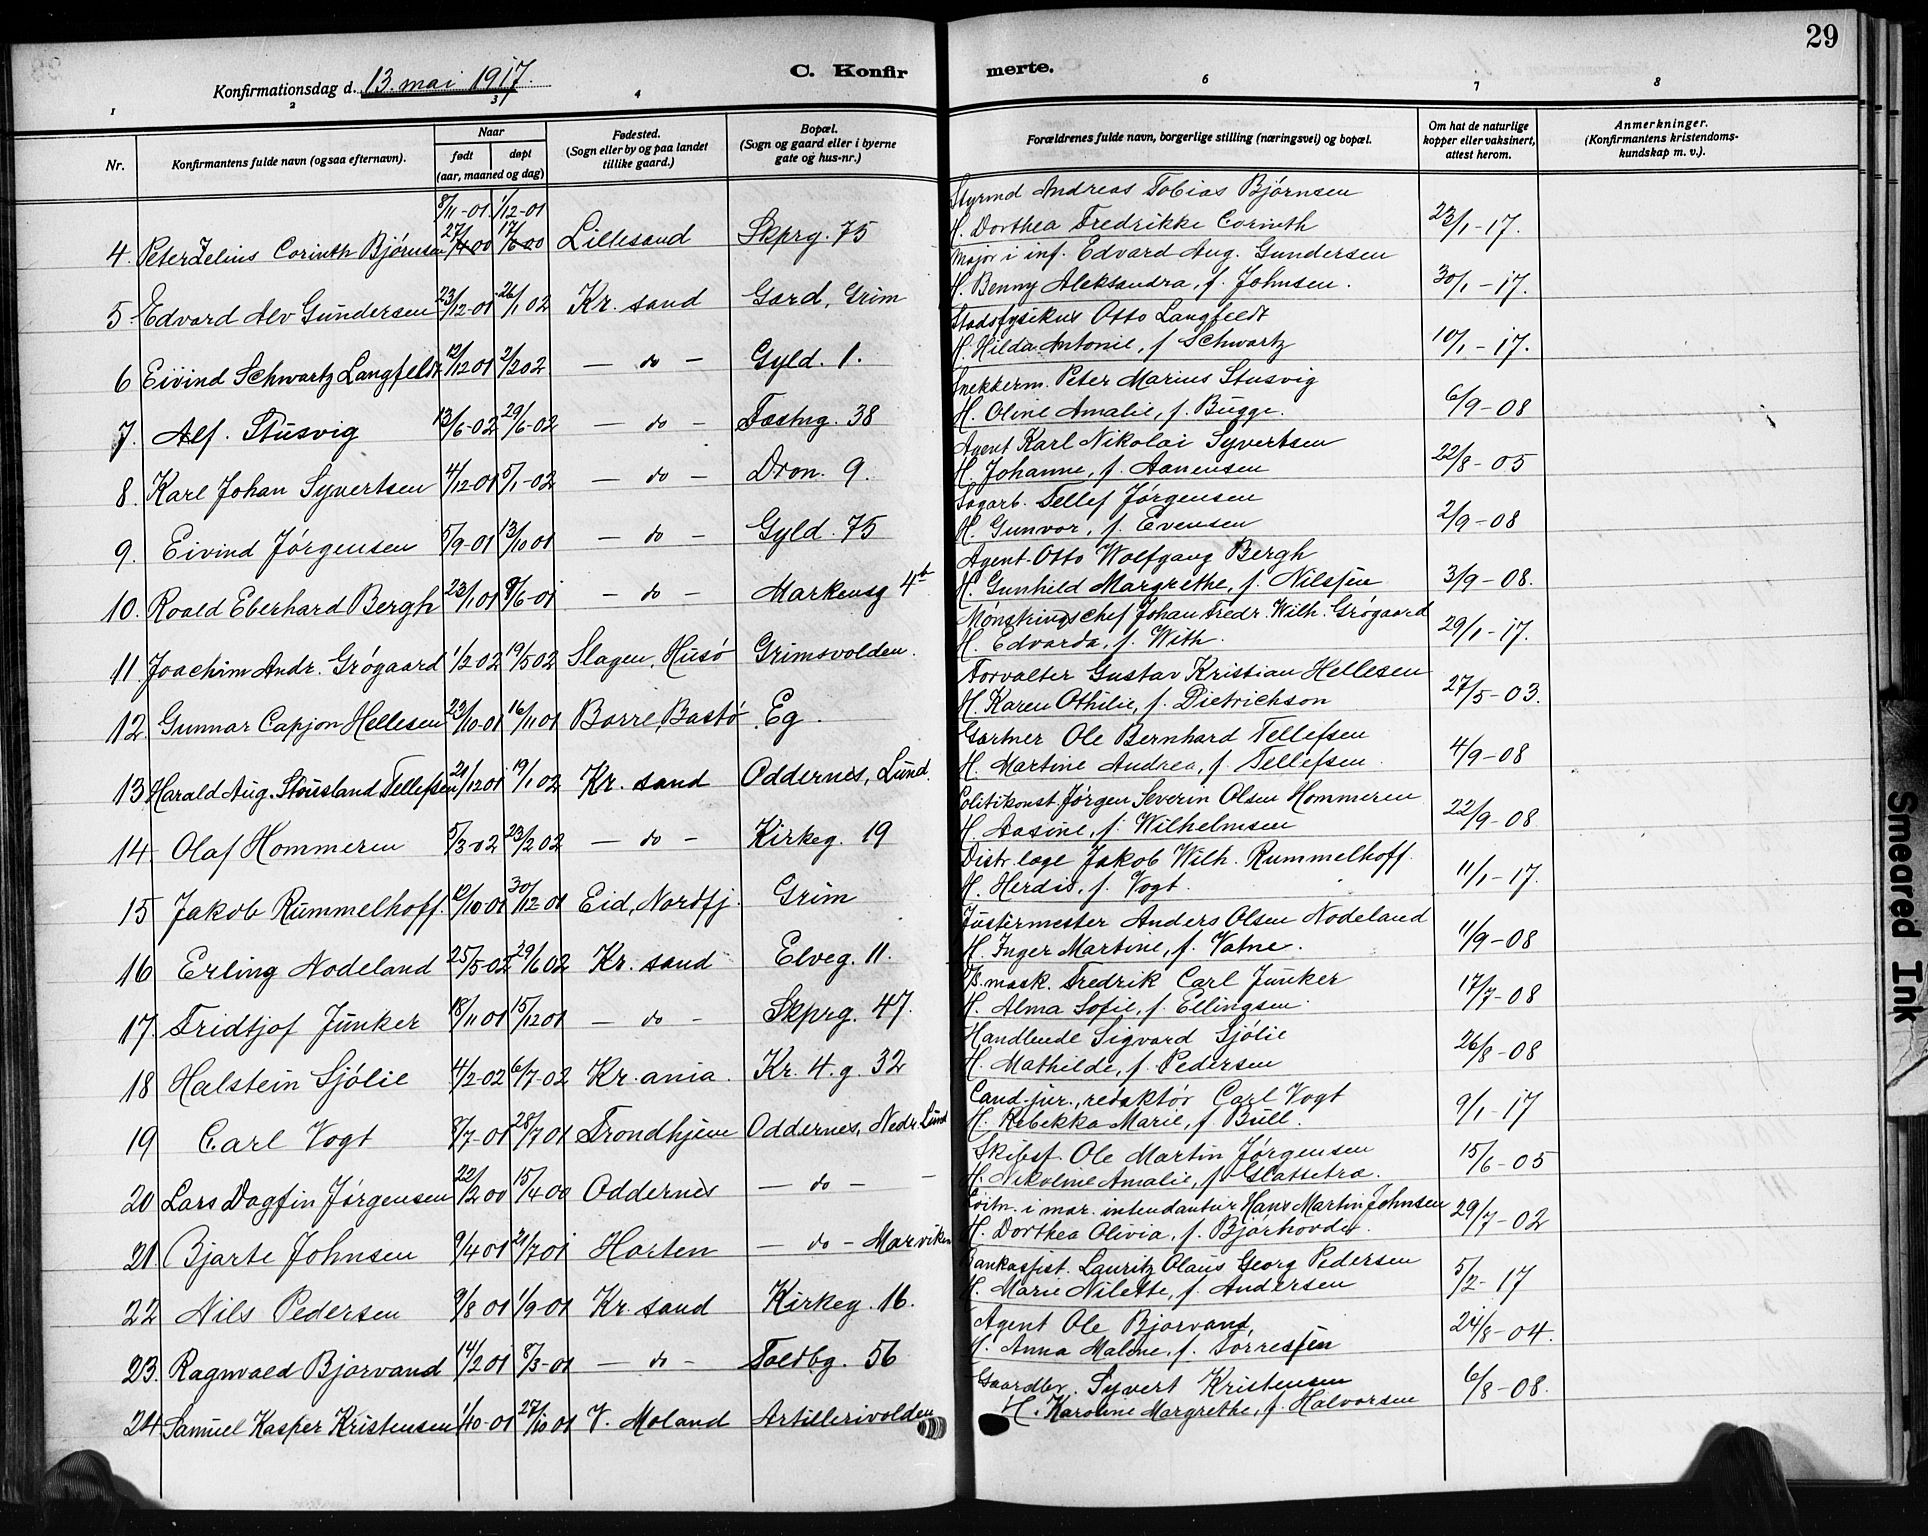 29
Konfirmationsdag d. 13. mai 1917.
C. Konfirmerte.
1 2 3 4 6 7 8
Nr.
Konfirmantens fulde navn (ogsaa efternavn).
Naar
født
døpt
(aar, maaned og dag)
Fødested.
(Sogn eller by og paa landet
tillike gaard.)
Bopæl.
(Sogn og gaard eller i byerne
gate og hus-nr.)
Forældrenes fulde navn, borgerlige stilling (næringsvei) og bopæl.
Om hat de naturlige
kopper eller vaksinert,
attest herom.
Anmerkninger.
(Konfirmantens kristendoms-
kundskap m. v.).
8/11-01 1/12-01 Styrmd Andreas Tobias Bjørnsen
4. Peter Zelius Corinth Bjørnsen 27/4 00 17/6 00 Lillesand Skprg. 75 H. Dorthea Fredrikke Corinth 23/1-17.
Major i inf. Edvard Aug. Gundersen
5. Edvard Alv Gundersen 23/12-01 26/1 02 Kr. sand Gard, Grim H. Benny Aleksandra, f. Johnsen. 30/1-17.
Stadsfysikus Otto Langfeldt
6 Eivind Schwartz Langfeldt 12/12 01 2/2 02 - do - Gyld. 1. H. Hilda Antonie, f Schwartz 10/1-17.
Snekkerm. Peter Marius Stusvig
7. Alf. Stusvig 13/6-02 29/6-02 - do - Fæstng. 38 H. Oline Amalie, f. Bugge. 6/9-08
Agent Karl Nikolai Syvertsen
8. Karl Johan Syvertsen 4/12-01 5/1-02 - do - Dron. 9. H. Johanne, f. Aanensen 22/8-05
Sagarb. Tellef Jørgensen
9. Eivind Jørgensen 5/9-01 13/10 01 - do - Gyld. 75 H. Gunvor, f. Evensen 2/9-08
Agent Otto Wolfgang Bergh
10. Roald Eberhard Bergh 23/1 01 9/6-01 - do - Markensg 4b H. Gunhild Margrethe, f. Nilssen 3/9-08.
Mønstringschef Johan Fredr. Wilh. Grøgaard
11. Joachim Andr. Grøgaard 1/2 02 19/5 02 Slagen, Husø Grimsvolden. H. Edvarda, f. With. 29/1-17.
Forvalter Gustav Kristian Hellesen
12. Gunnar Capjon Hellesen 23/10-01 16/11 01 Borre, Bastø Eg. H. Karen Othilie, f. Dietrichson 27/5-03.
Gartner Ole Bernhard Tellefsen
13 Harald Aug. Stousland Tellefsen 21/12 01 19/1 02 Kr. sand Oddernes, Lund. H. Martine Andrea, f. Tellefsen. 4/9-08
Politikonst. Jørgen Severin Olsen Hommeren
14 Olaf Hommeren 5/3-02 23/2 02 - do - Kirkeg. 19 H. Aasine, f. Wilhelmsen 22/9-08
Distr. læge Jakob Wilh. Rummelhoff.
15 Jakob Rummelhoff. 12/10 01 30/12-01 Eid, Nordfj. Grim H. Herdis, f. Vogt. 11/1-17.
Justermester Anders Olsen Nodeland
16 Erling Nodeland 25/5-02 29/6 02 Kr. sand Elveg. 11. H. Inger Martine, f. Vatne. 11/9-08
mask. Fredrik Carl Junker
17. Fridtjof Junker 18/11 01 15/12 01 - do - Skprg. 47. H. Alma Sofie, f. Ellingsen. 17/7-08
Handlende Sigvard Sjølie
18 Halstein Sjølie 4/2-02 6/7-02 Kr. ania. Kr. 4. g. 32 H. Mathilde, f. Pedersen 26/8-08
Cand. jur., redaktør Carl Vogt
19 Carl Vogt 8/7-01 28/7 01 Trondhjem Oddernes, Nedr. Lund H. Rebekka Marie, f Bull. 9/1-17
Skibsf. Ole Martin Jørgensen
20 Lars Dagfin Jørgensen 22/2 00 15/4 00 Oddernes - do - H. Nikoline Amalie, f. Glattetra. 15/6-05
i mar. intendantur Hans Martin Johnsen
21. Bjarte Johnsen 9/4 01 21/7 01 Horten - do - Marviken H. Dorthea Olivia, f. Bjørhovde. 29/7-02
Bankassist. Lauritz Olaus Georg Pedersen
22 Nils Pedersen 9/8 01 1/9-01 Kr. sand Kirkeg. 16. H. Marie Nilette, f. Andersen 5/2-17
Agent Ole Bjorvand
23. Ragnvald Bjorvand 14/2 01 8/3-01 - do - Toldbg. 56 H. Anna Malene, f. Torressen 24/8-04.
Gaardbr. Syvert Kristensen
24 Samuel Kasper Kristensen 1/10-01 27/10 01 V. Moland Artillerivolden H. Karoline Margrethe, f. Halvorsen 6/8-08.
Smeared Ink